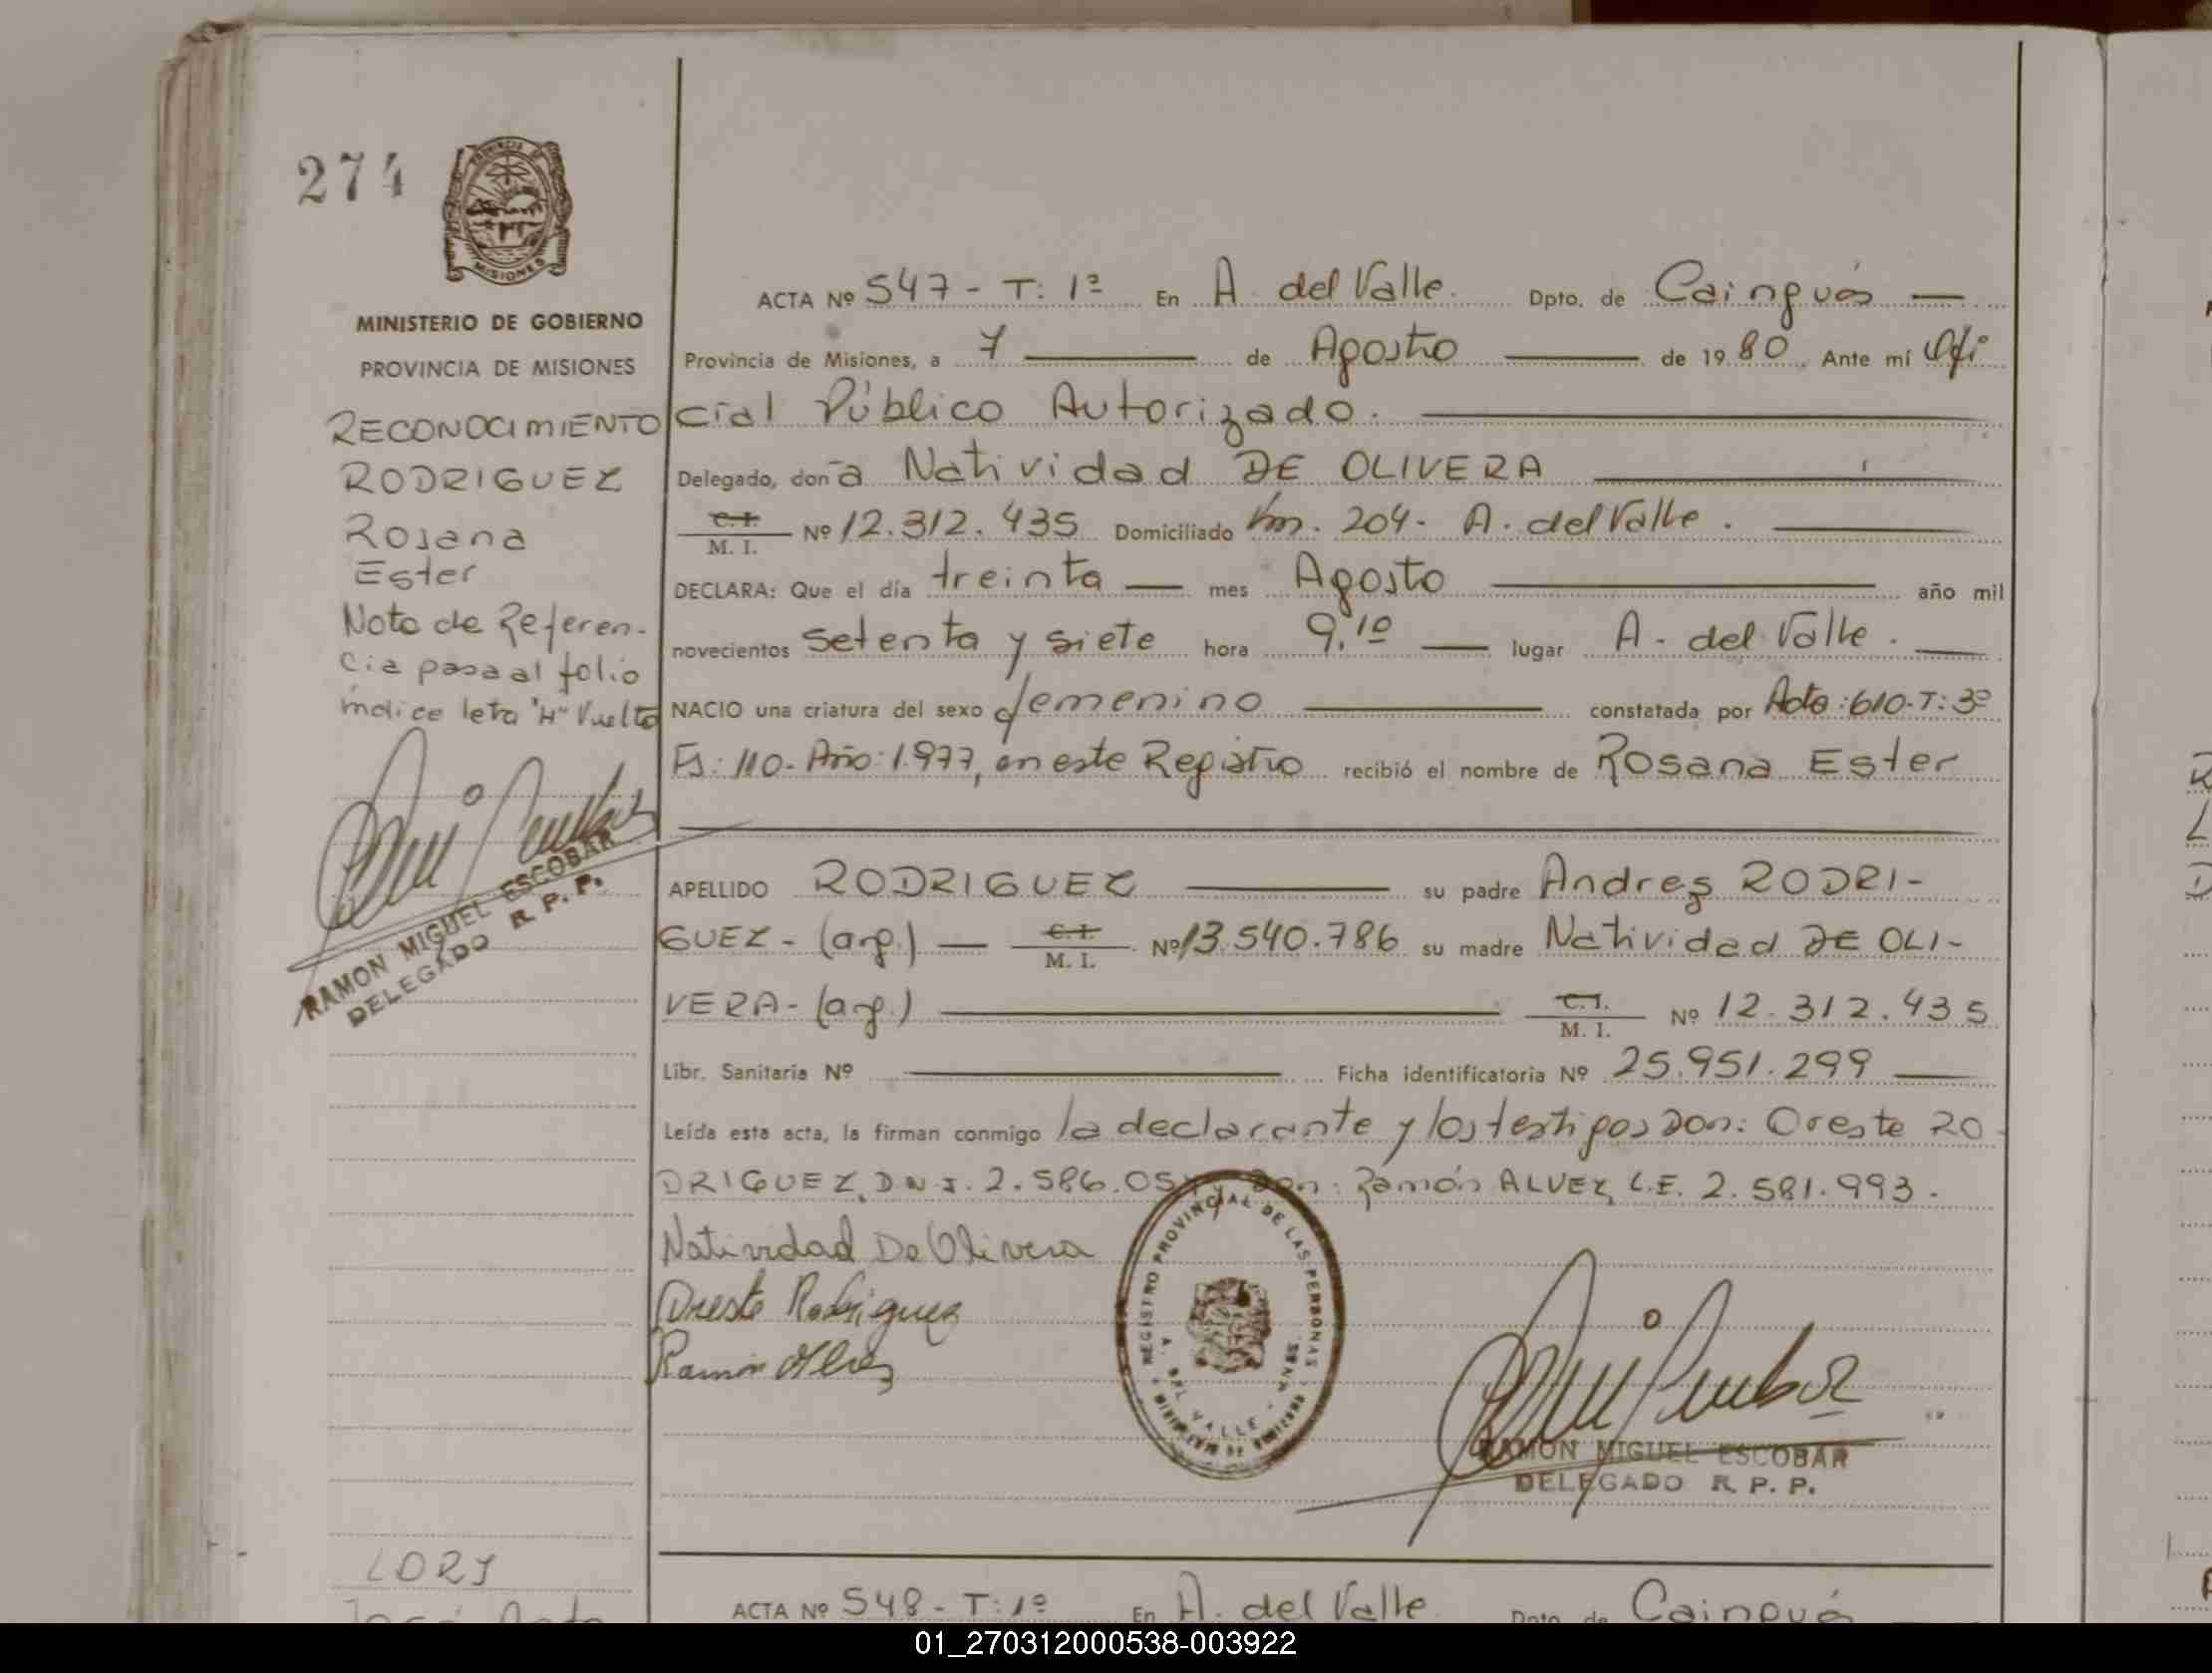 274
PROVINCIA DE
MISIONES
MINISTERIO DE GOBIERNO
PROVINCIA DE MISIONES
RECONOCIMIENTO
RODRIGUEZ
Rosana
Ester
Nota de Referen-
cia pasa al folio
índice letra "H" Vuelta
RAMON MIGUEL ESCOBAR
DELEGADO R. P. P.
ACTA Nº 547 - T: 1º En A. del Valle. Dpto. de Cainguás
Provincia de Misiones, a 7 de Agosto de 1980. Ante mí Ofi
cial Público Autorizado.
Delegado, don a Natividad DE OLIVERA
C.I. M. I. Nº 12.312.435 Domiciliado Km. 204 - A. del Valle.
DECLARA: Que el día treinta mes Agosto año mil
novecientos setenta y siete hora 9,10 lugar A. del Valle.
NACIO una criatura del sexo femenino constatada por Acta: 610-T: 3º
Fs: 110- Año: 1.977, en este Registro recibió el nombre de Rosana Ester
APELLIDO RODRIGUEZ su padre Andres RODRI-
GUEZ - (arg.) C.I. M. I. Nº 13.540.786 su madre Natividad DE OLI-
VERA - (arg.) C.I. M. I. Nº 12.312.435
Libr. Sanitaria Nº Ficha identificatoria Nº 25.951.299
Leída esta acta, la firman conmigo la declarante y los testigos Don: Oreste RO
DRIGUEZ, D.N.I. 2.586.05 Don: Ramón ALVEZ, L.E. 2.581.993.
Natividad De Olivera
Oreste Rodriguez
Ramón Alvez
REGISTRO PROVINCIAL DE LAS PERSONAS
A. DEL VALLE
RAMON MIGUEL ESCOBAR
DELEGADO R. P. P.
LORI
José
ACTA Nº 548 - T: 1º En A. del Valle Dpto. de Cainguás
01_270312000538-003922